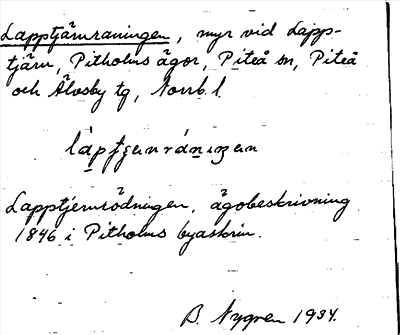 Lapptjärnraningen, myr vid Lapp-
tjärn, Pitholms ägor, Piteå sn, Piteå
och Älvsby tg, Norrb. l.
Lapptjernrödningen, ägobeskrivning
1846 i Pitholms byaskrin.
B. Nygren 1934.